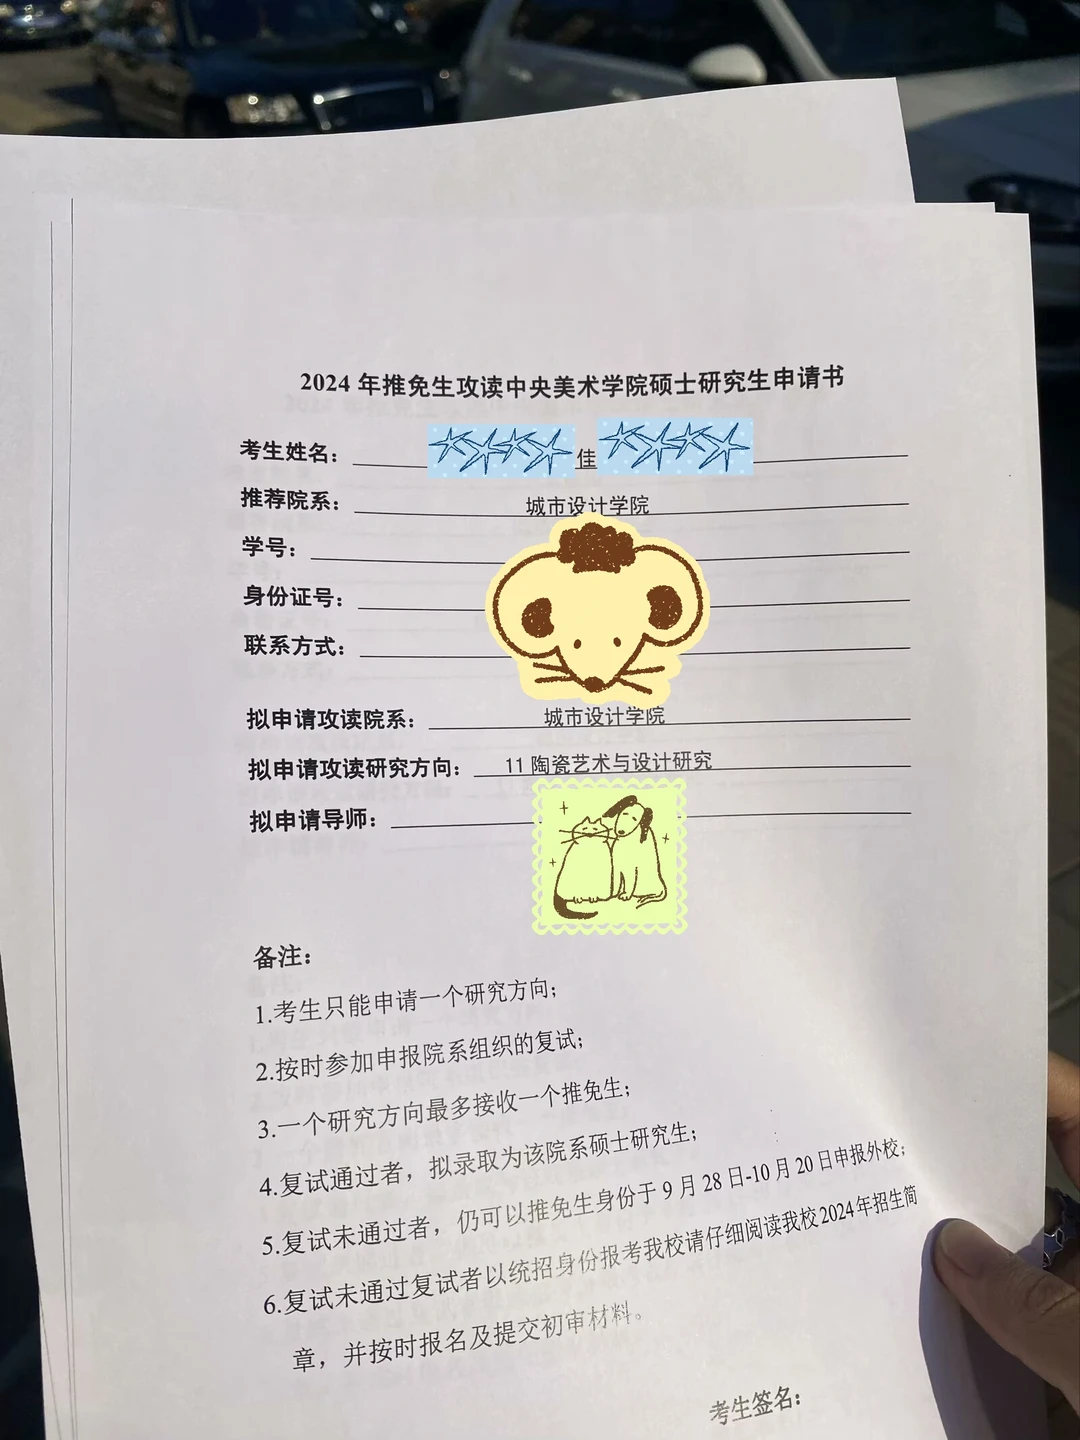 2024 年推免生攻读中央美术学院硕士研究生申请书
考生姓名： 佳
推荐院系： 城市设计学院
学号：
身份证号：
联系方式：
拟申请攻读院系： 城市设计学院
拟申请攻读研究方向： 11 陶瓷艺术与设计研究
拟申请导师：
备注：
1.考生只能申请一个研究方向；
2.按时参加申报院系组织的复试；
3.一个研究方向最多接收一个推免生；
4.复试通过者，拟录取为该院系硕士研究生；
5.复试未通过者，仍可以推免生身份于 9 月 28 日-10 月 20 日申报外校；
6.复试未通过复试者以统招身份报考我校请仔细阅读我校2024年招生简
章，并按时报名及提交初审材料。
考生签名：